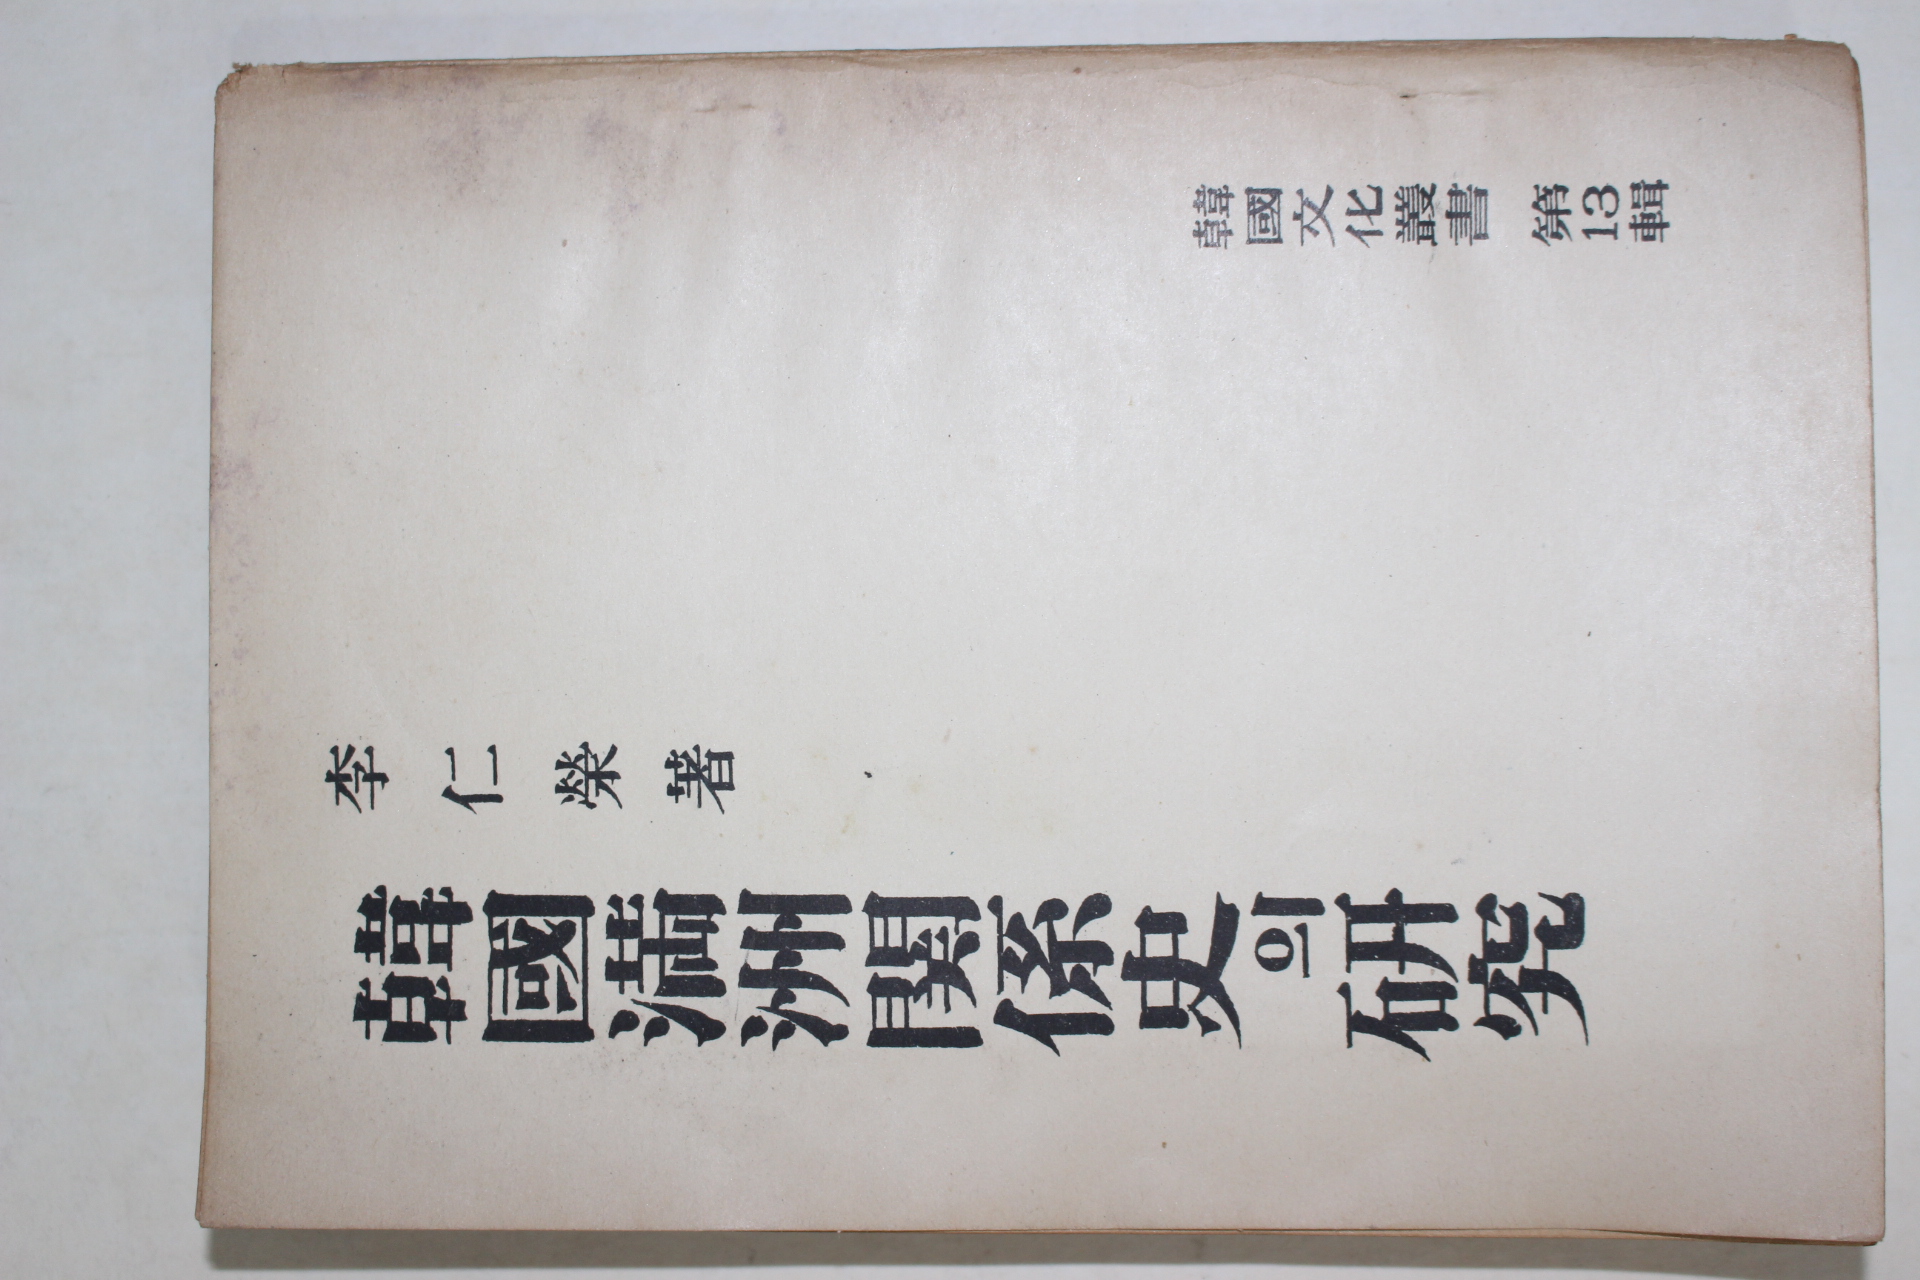 韓國文化叢書 第13輯
李仁榮著
韓國滿洲關係史의研究